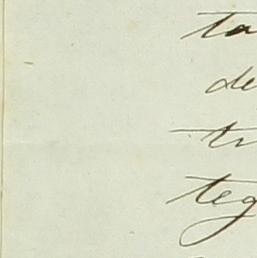 ta
de
tr
teg